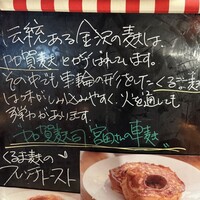 伝統ある金沢の麩は、
加賀麩と呼ばれています。
その中でも車輪の形をした、くるま麩
は味がしみ込みやすく、火を通しても
弾力があります。
加賀麩司 宮田さんの車麩
くるま麩の
フレンチトースト